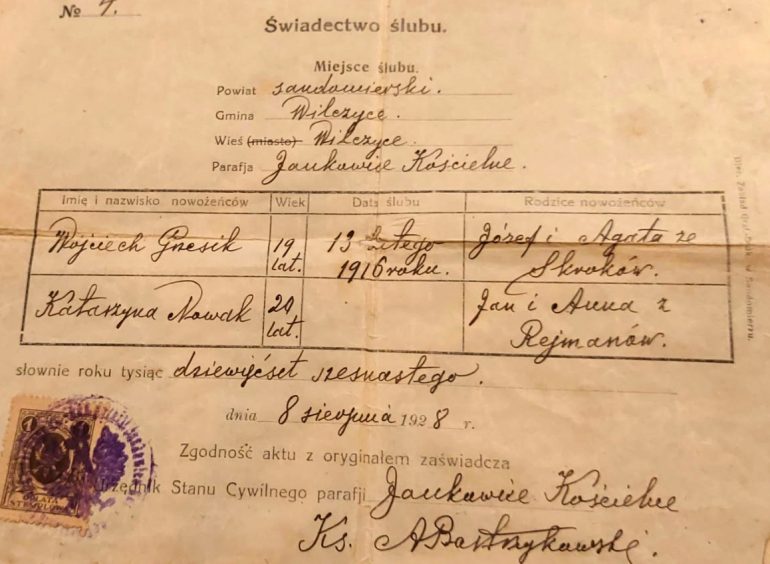 № 7.
Świadectwo ślubu.
Miejsce ślubu.
Powiat sandomierski.
Gmina Wilczyce.
Wieś (miasto) Wilczyce.
Parafja Jankowice Kościelne.
Imię i nazwisko nowożeńców Wiek Data ślubu Rodzice nowożeńców
Wojciech Grzesik 19 lat. 13 Lutego 1916 roku. Józef i Agata ze Skroków.
Katarzyna Nowak 20 lat. Jan i Anna z Rejmanów.
słownie roku tysiąc dziewięćset szesnastego.
dnia 8 sierpnia 1928 r.
Zgodność aktu z oryginałem zaświadcza
Urzędnik Stanu Cywilnego parafji Jankowice Kościelne
Ks. A Bastrzykowski.
1
OPŁATA
STEMPLOWA